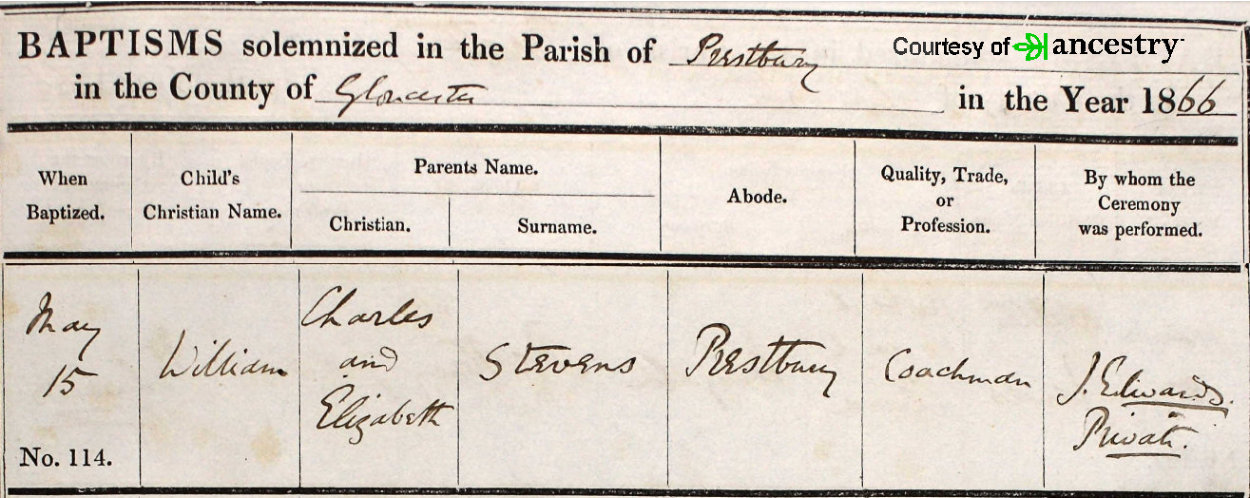 BAPTISMS solemnized in the Parish of Prestbury
Courtesy of ancestry
in the County of Gloucester in the Year 1866
When Baptized.
Child's Christian Name.
Parents Name.
Christian.
Surname.
Abode.
Quality, Trade, or Profession.
By whom the Ceremony was performed.
May 15
No. 114.
William
Charles and Elizabeth
Stevens
Prestbury
Coachman
J. Edwards.
Private.